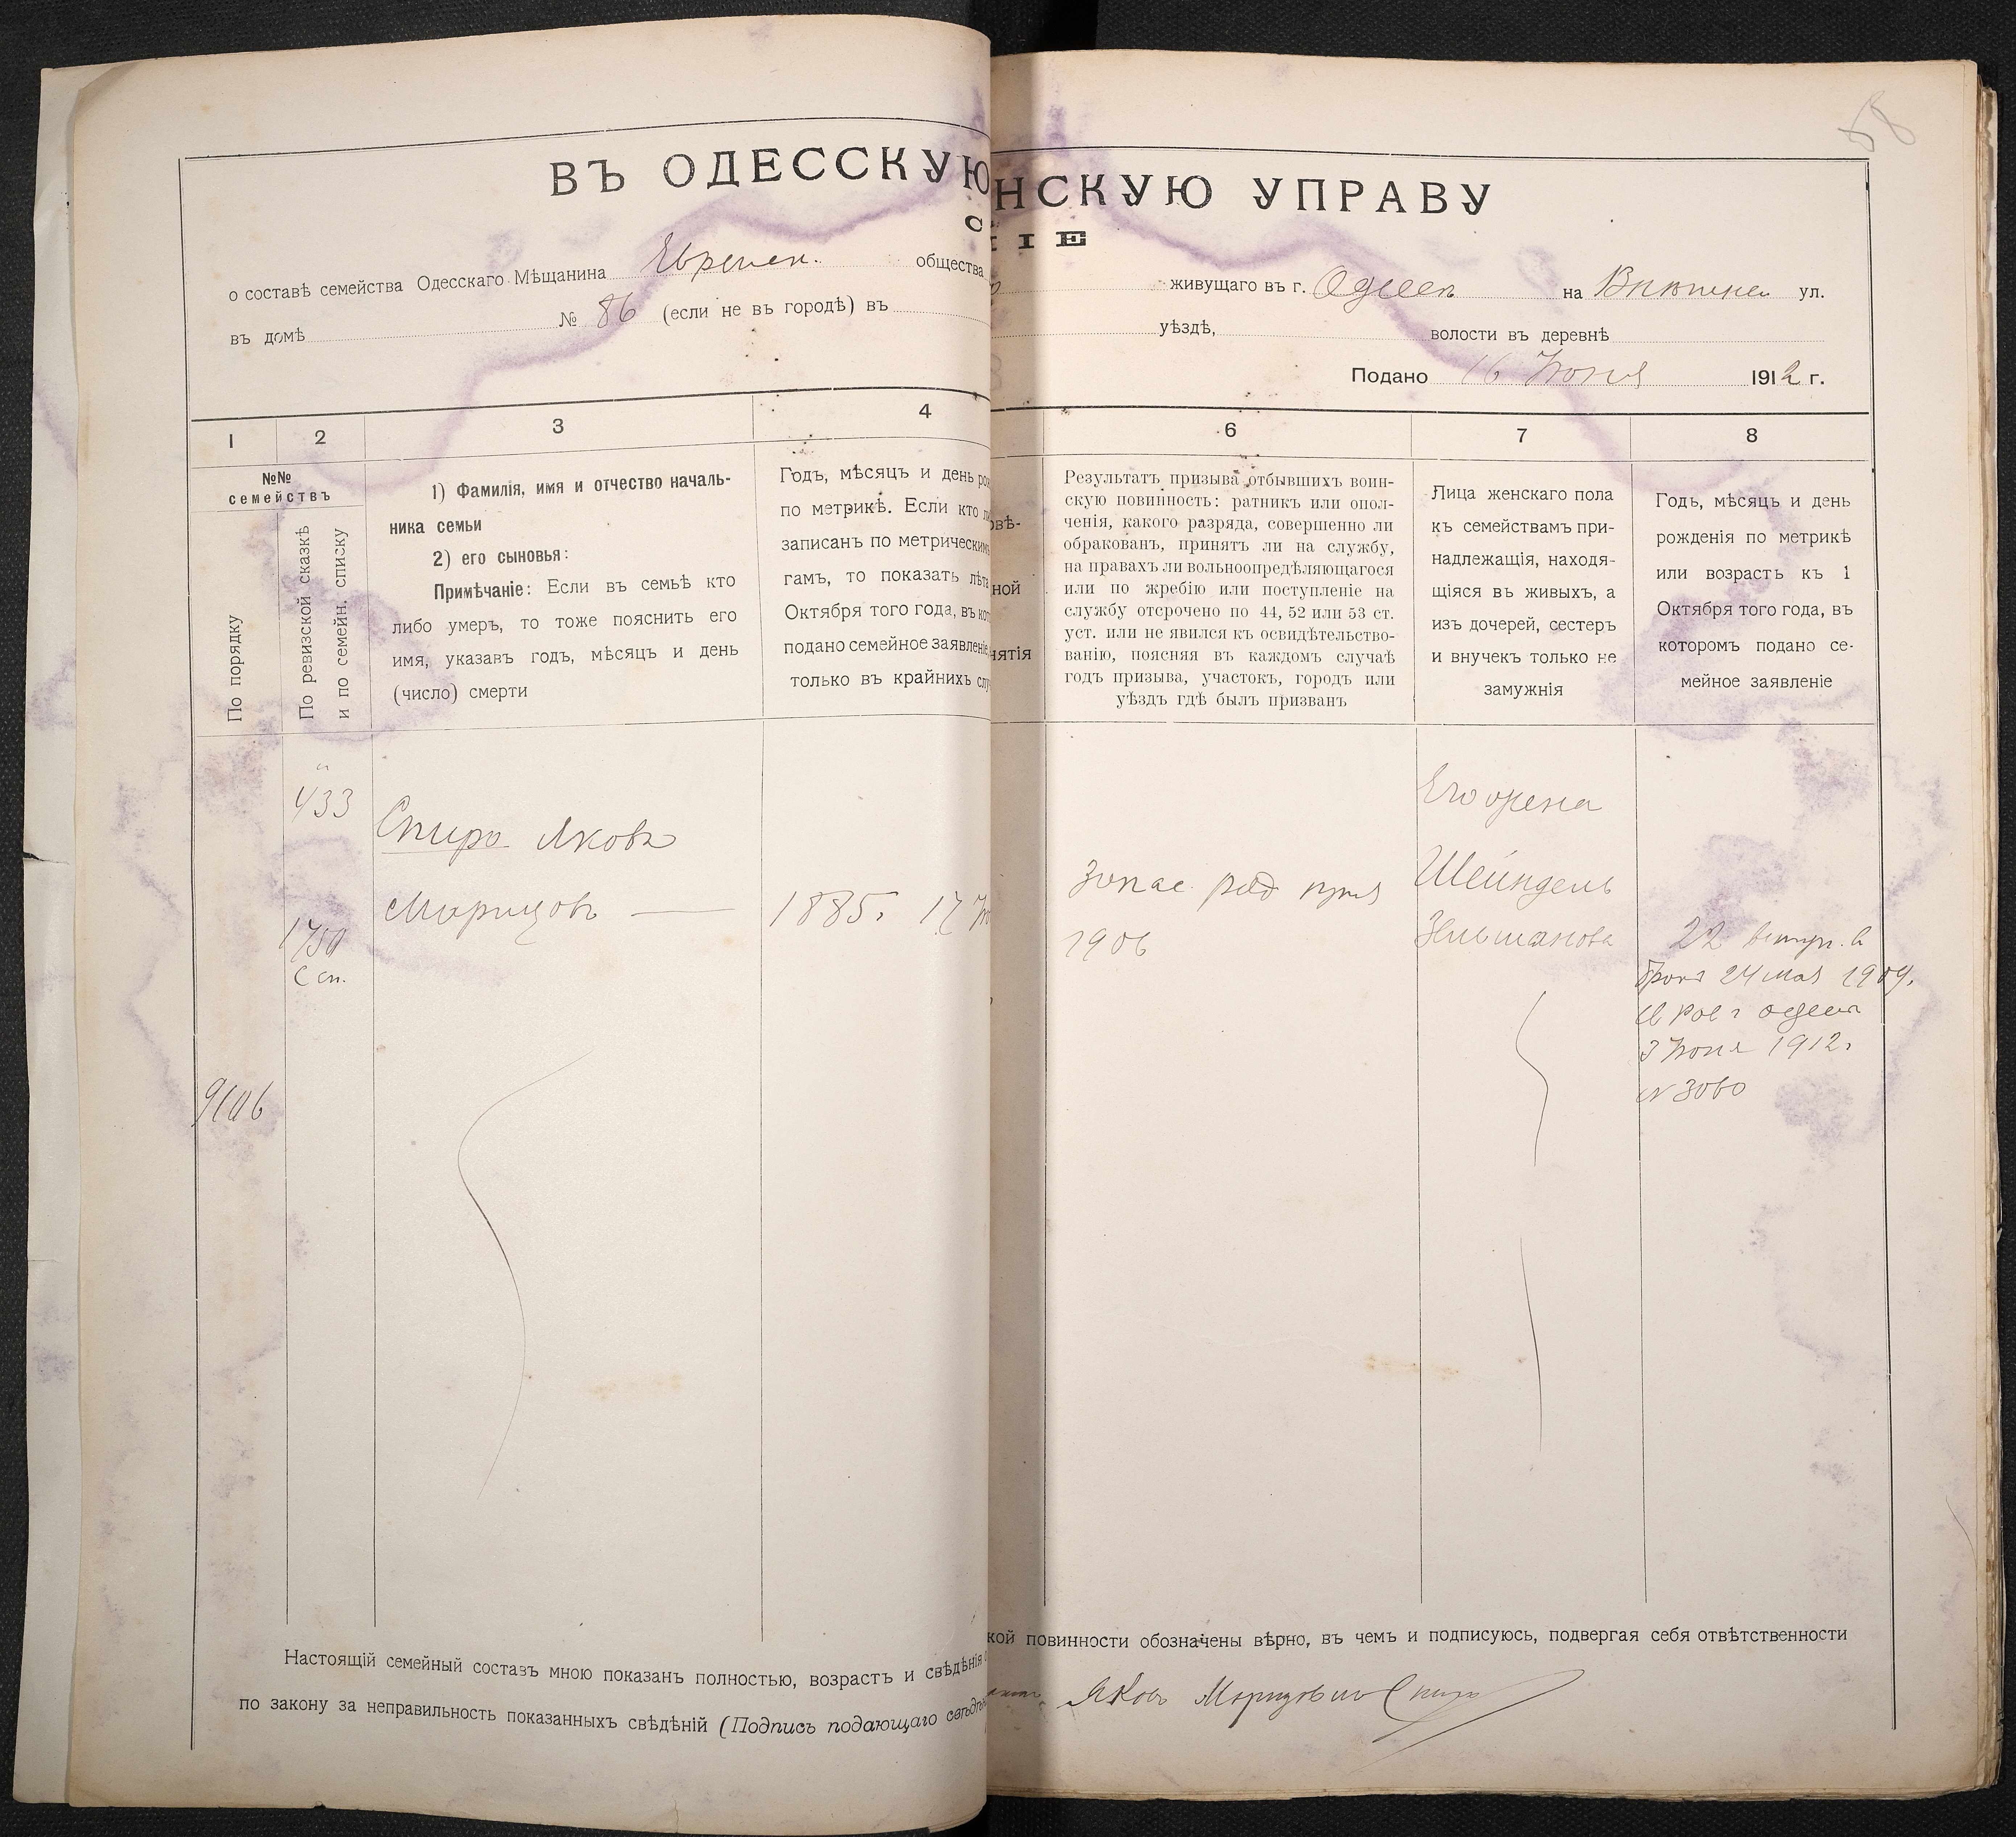 68
ВЪ ОДЕССКУЮ
НСКУЮ УПРАВУ
С
IE
о составѣ семейства Одесскаго Мѣщанина Еврейск. общества
живущаго въ г. Одессѣ на ул.
въ домѣ № 86 (если не въ городѣ) въ
уѣздѣ, волости въ деревнѣ
Подано 16 Іюня 1912 г.
1 2 3 4
6 7 8
№№
семействъ
По порядку
По ревизской сказкѣ
и по семейн. списку
1) Фамилія, имя и отчество началь-
ника семьи
2) его сыновья:
Примѣчаніе: Если въ семьѣ кто
либо умеръ, то тоже пояснить его
имя, указавъ годъ, мѣсяцъ и день
(число) смерти
Годъ, мѣсяцъ и день рож
по метрикѣ. Если кто
записанъ по метрическимъ
гамъ, то показать лѣта
Октября того года, въ кот
подано семейное заявленіе,
только въ крайнихъ слу
овѣ-
ной
нятія
Результатъ призыва отбывшихъ воин-
скую повинность: ратникъ или опол-
ченія, какого разряда, совершенно ли
обракованъ, принятъ ли на службу,
на правахъ ли вольноопредѣляющагося
или по жребію или поступленіе на
службу отсрочено по 44, 52 или 53 ст.
уст. или не явился къ освидѣтельство-
ванію, поясняя въ каждомъ случаѣ
годъ призыва, участокъ, городъ или
уѣздъ гдѣ былъ призванъ
Лица женскаго пола
къ семействамъ при-
надлежащія, находя-
щіяся въ живыхъ, а
изъ дочерей, сестеръ
и внучекъ только не
замужнія
Годъ, мѣсяцъ и день
рожденія по метрикѣ
или возрастъ къ 1
Октября того года, въ
которомъ подано се-
мейное заявленіе
433
Спиро Яковъ
Морицовъ
1885г. 17
1750
С сп.
9106
Запас. ряд. приз
1906
Его жена
Шейндель
22 вступ. в
бракъ 24 мая 1909.
3 Іюня 1912.
№ 3060
Настоящій семейный составъ мною показанъ полностью, возрастъ и свѣдѣнія
кой повинности обозначены вѣрно, въ чемъ и подписуюсь, подвергая себя отвѣтственности
по закону за неправильность показанныхъ свѣдѣній (Подпись подающаго свѣдѣ
Яковъ Морицовъ Спиро